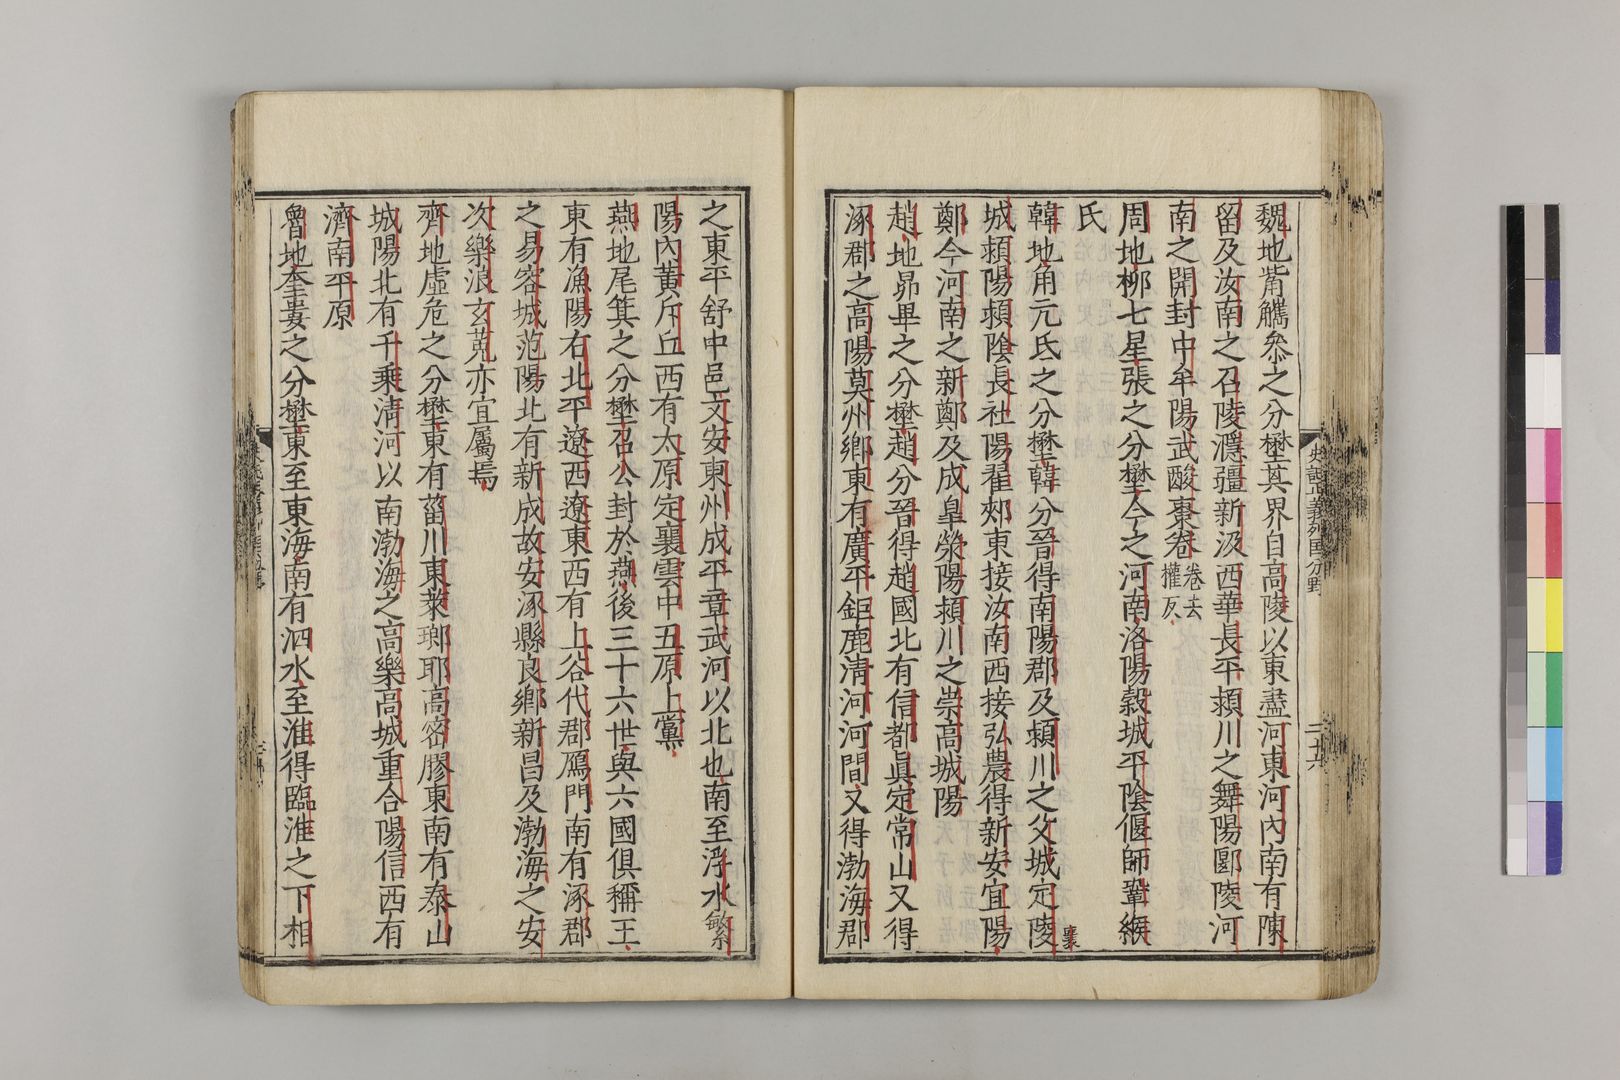 魏地觜觿叅之分壄其界自高陵以東盡河東河內南有陳
留及汝南之召陵濦彊新汲西華長平潁川之舞陽郾陵河
南之開封中牟陽武酸棗卷卷去權反
周地柳七星張之分壄今之河南洛陽穀城平陰偃師鞏緱
氏
韓地角亢氐之分壄韓分晉得南陽郡及潁川之父城定陵襄
城潁陽潁陰長社陽翟郟東接汝南西接弘農得新安宜陽
鄭今河南之新鄭及成皐滎陽潁川之崇高城陽
趙地昴畢之分壄趙分晉得趙國北有信都眞定常山又得
涿郡之高陽莫州鄉東有廣平鉅鹿淸河河間又得渤海郡
史記正義列國分野
二十六
之東平舒中邑文安東州成平章武河以北也南至浮水繁
陽內黃斥丘西有太原定襄雲中五原上黨
燕地尾箕之分壄召公封於燕後三十六世與六國俱稱王
東有漁陽右北平遼西遼東西有上谷代郡鴈門南有涿郡
之易容城范陽北有新成故安涿縣良鄉新昌及渤海之安
次樂浪玄菟亦宜屬焉
齊地虛危之分壄東有菑川東萊瑯耶高密膠東南有泰山
城陽北有千乘淸河以南渤海之高樂高城重合陽信西有
濟南平原
魯地奎婁之分壄東至東海南有泗水至淮得臨淮之下相